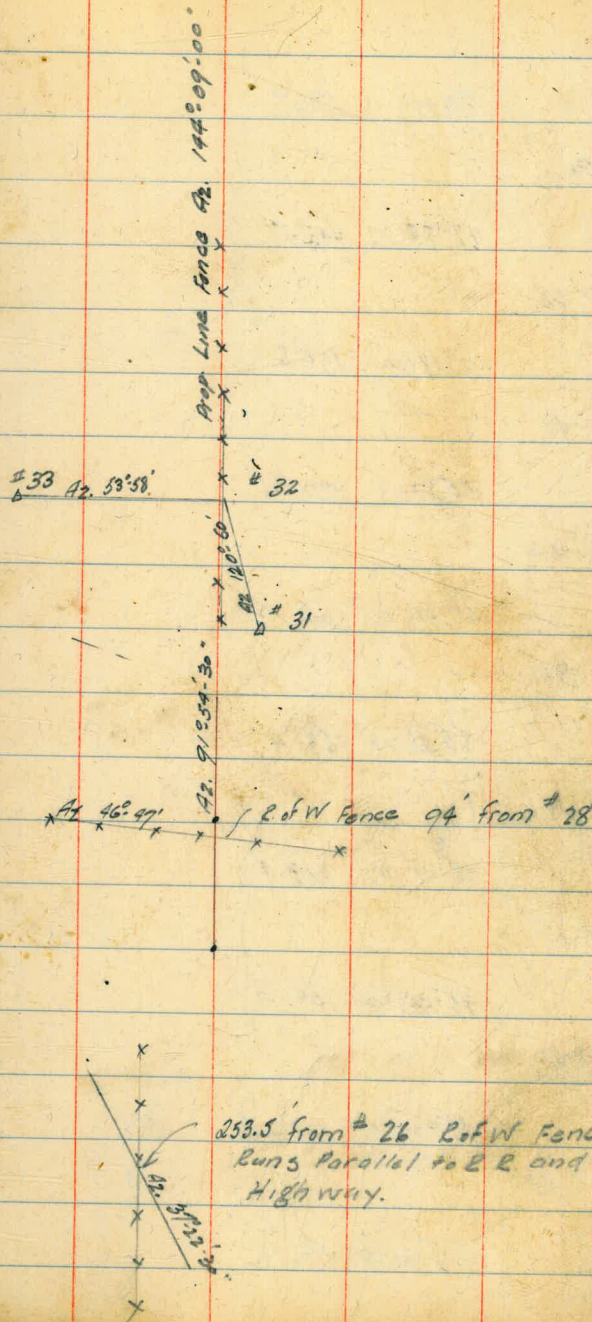 Prop. Line Fence Az. 144°-09'-00"
#33 Az. 53°-58'
#32
Az. 120°-60'
#31
Az. 91°54'-30"
Az 46°-47'
R of W Fence 94' from #28
253.5' from #26 R of W Fenc
Runs Parallel to R R and
Highway.
Az.